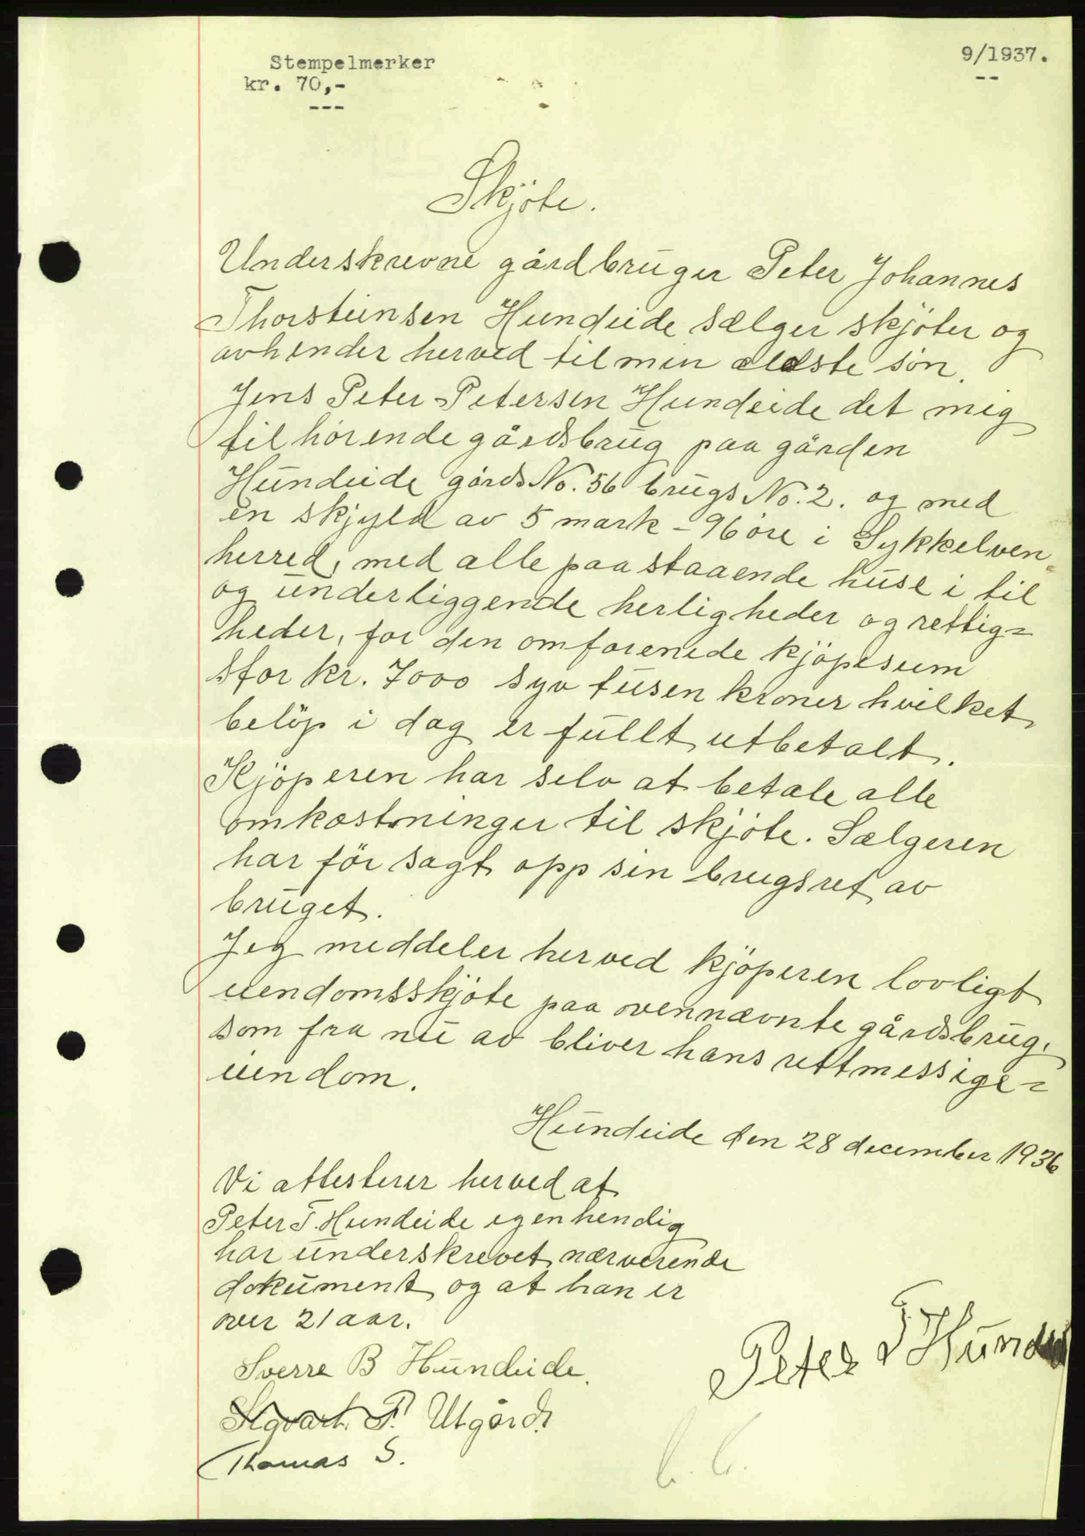 Stempelmerker
kr. 70,-
---
9/1937.
--
Skjöte.
Underskrevne gårdbruger Peter Johannes
Thorsteinsen Hundeide sælger skjöter og
avhender herved til min eldste søn
Jens Peter Petersen Hundeide det mig
tilhørende gårdsbrug paa gården
Hundeide gårds No. 56 brugs No. 2. og med
en skjyld av 5 mark - 96 øre i Sykkelven
herred, med alle paa staaende huse i til
og underliggende herligheder og rettig=
heder, for den omforenede kjöpesum
stor kr. 7000 syv tusen kroner hvilket
belöp i dag er fullt utbetalt.
Kjöperen har selv at betale alle
omkostninger til skjöte. Sælgeren
har för sagt opp sin brugsret av
bruget.
Jeg meddeler herved kjöperen lovligt
eiendomsskjöte paa ovennævnte gårdsbrug,
som fra nu av bliver hans rettmessige=
eiendom.
Hundeide den 28 december 1936
Vi attesterer herved at
Peter T. Hundeide egenhendig
har underskrevet nærverende
dokument og at han er
over 21 aar.
Peter T Hundei
Sverre B Hundeide.
Sigvart P. Utgård.
Thomas S.